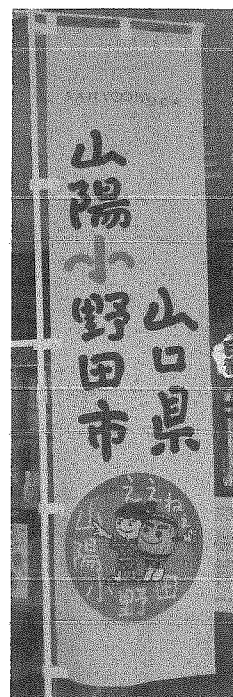 山口県
山陽小野田市
ええねぇ
山陽小野田